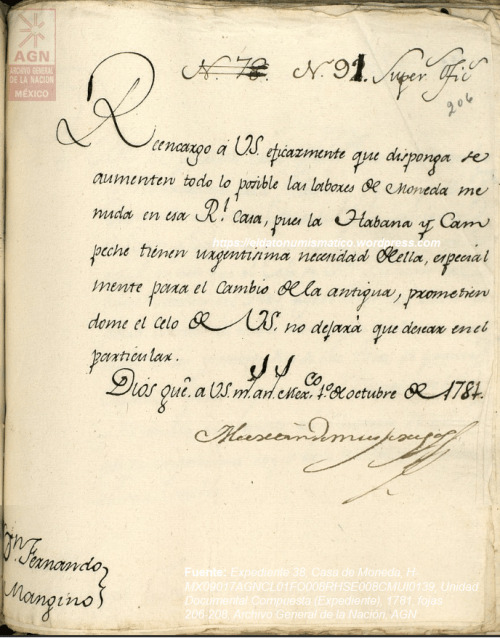 AGN
ARCHIVO GENERAL
DE LA NACIÓN
MÉXICO
N. 78. N. 91. Super.s Ofic.s
206
Reencargo á US. eficazmente que disponga se
aumenten todo lo posible las labores de Moneda me
nuda en esa R.l Casa, pues la Habana y Cam
peche tienen urgentisima necesidad de ella, especial
mente para el cambio de la antigua, prometien
dome el celo de US. no dejará que desear en el
particular.
Dios gue. a US. m.s an.s Mex.co 1.o de octubre de 1781.
S.n Fernando
Mangino
https://eldatonumismatico.wordpress.com
Fuente: Expediente 38, Casa de Moneda, H-
MX09017AGNCL01FO008RHSE008CMUI0139, Unidad
Documental Compuesta (Expediente), 1781, fojas
206-208. Archivo General de la Nación, AGN